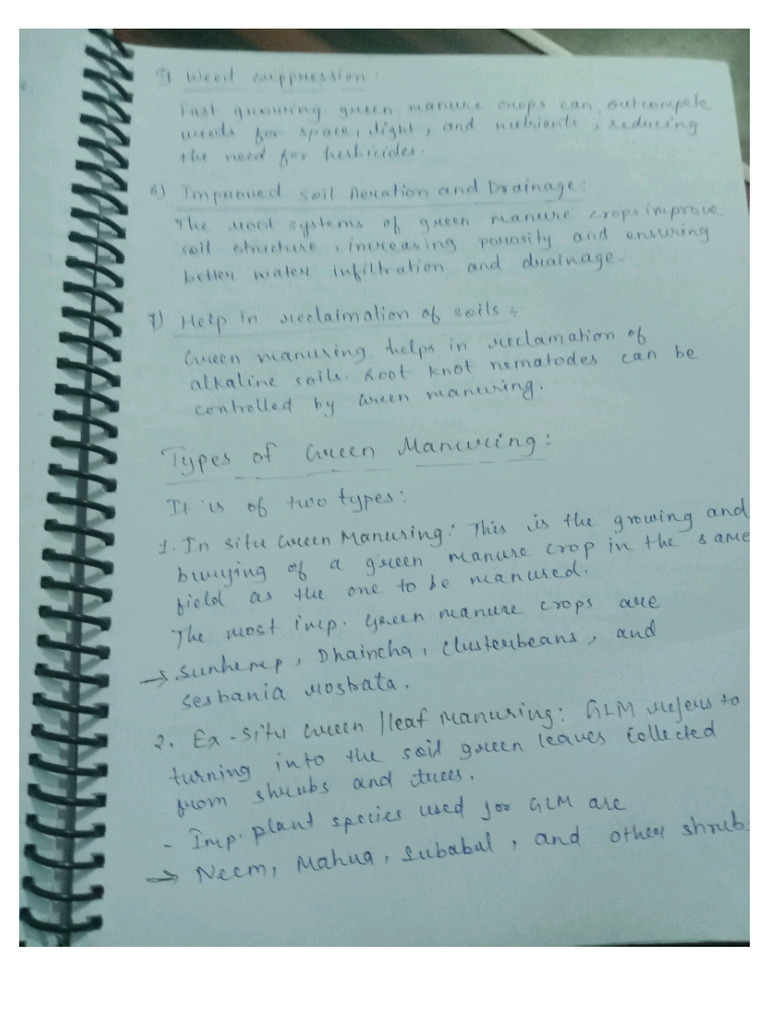 5) Weed suppression:
Fast growing green manure crops can outcompete
weeds for space, light, and nutrients, reducing
the need for herbicides.
6) Improved soil Aeration and Drainage:
The root systems of green manure crops improve
soil structure, increasing porosity and ensuring
better water infiltration and drainage.
7) Help in reclaimation of soils:
Green manuring helps in reclamation of
alkaline soils. Root knot nematodes can be
controlled by Green manuring.
Types of Green Manuring:
It is of two types:
1. In situ Green Manuring: This is the growing and
burying of a green manure crop in the same
field as the one to be manured.
The most imp. green manure crops are
→ Sunhemp, Dhaincha, Clusterbeans, and
Sesbania rostrata.
2. Ex-situ Green/leaf Manuring: GLM refers to
turning into the soil green leaves collected
from shrubs and trees.
- Imp. plant species used for GLM are
→ Neem, Mahua, Subabul, and other shrub